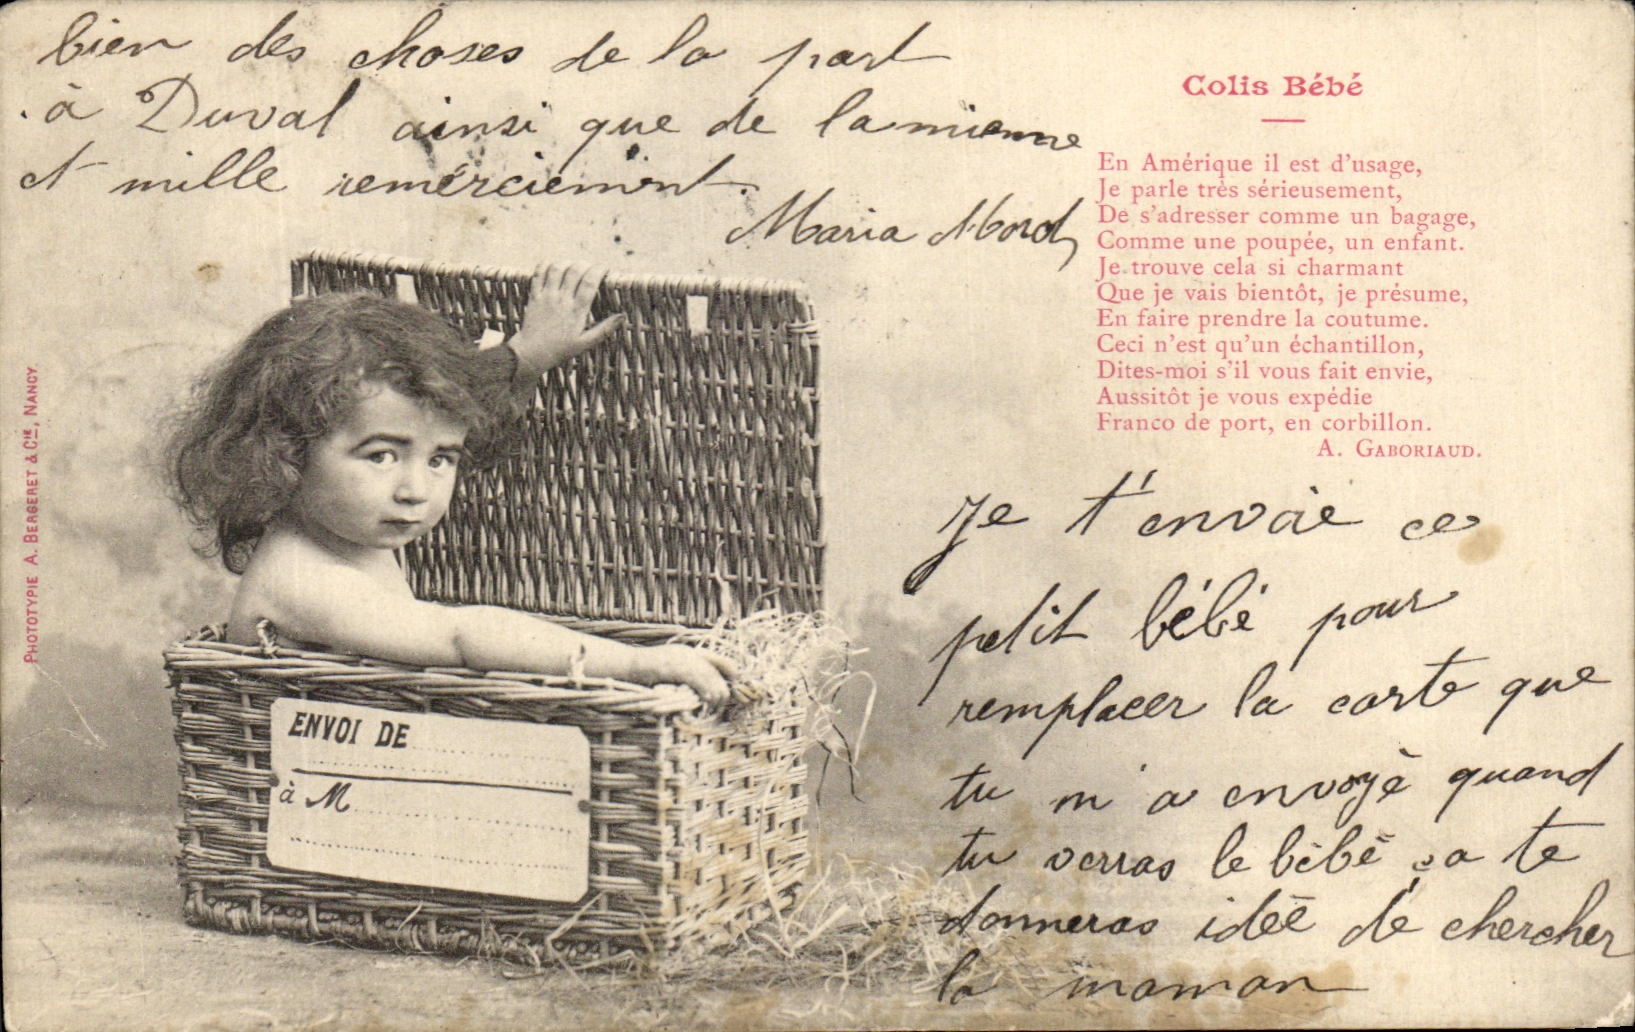 bien des choses de la part
à Duval ainsi que de la mienne
et mille remérciement.
Maria
Colis Bébé
En Amérique il est d'usage,
Je parle très sérieusement,
De s'adresser comme un bagage,
Comme une poupée, un enfant.
Je trouve cela si charmant
Que je vais bientôt, je présume,
En faire prendre la coutume.
Ceci n'est qu'un échantillon,
Dites-moi s'il vous fait envie,
Aussitôt je vous expédie
Franco de port, en corbillon.
A. GABORIAUD.
Je t'envoie ce
petit bébé pour
remplacer la carte que
tu m'a envoyè quand
tu verras le bébé ça te
donneras idée de chercher
la maman
ENVOI DE
à M
PHOTOTYPIE A. BERGERET & Cie, NANCY.